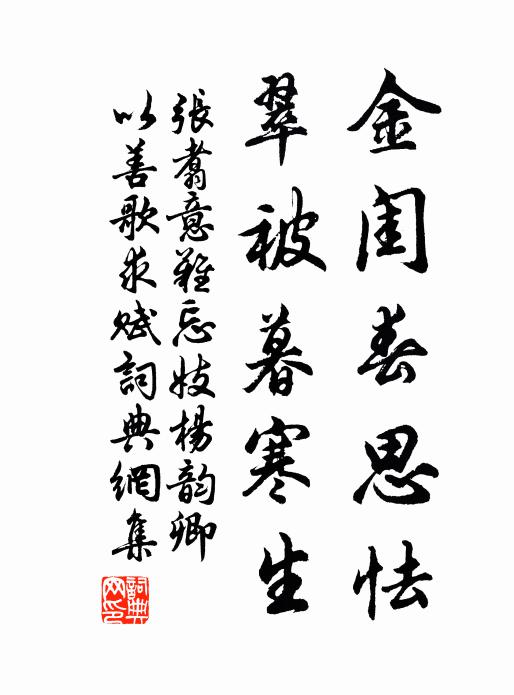 金閨春思怯
翠被暮寒生
張翥意難忘妓楊韵卿
以善歌求賦詞典網集
詞典
网印